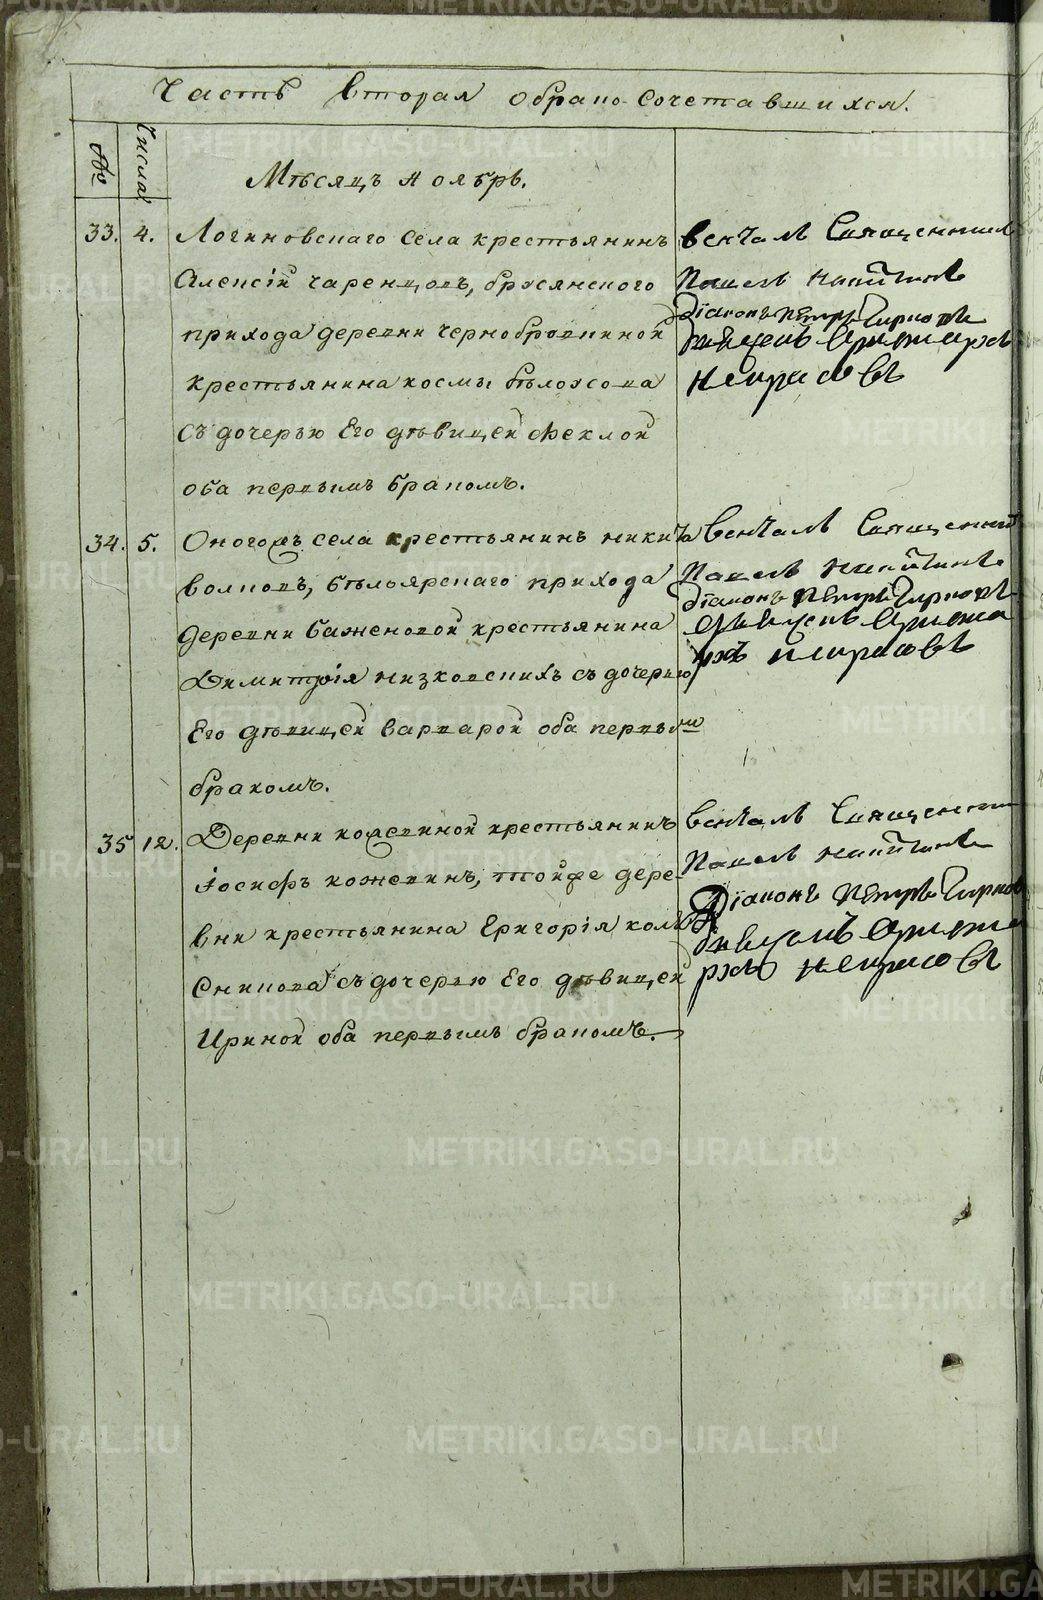 Часть вторая о брако-сочетавшихся.
№
Числа
Мѣсяцъ Ноябрь.
33. 4. Логиновскаго села крестьянинъ
Алексій Чаренцовъ, бруснянского
прихода деревни Чернобровкиной
крестьянина Космы Бѣлоусова
съ дочерью Его дѣвицей Феклой
оба первымъ бракомъ.
венчалъ Священникъ
Павелъ Никитинъ
Діаконъ Петръ
Некрасовъ
34. 5. Оногожъ села крестьянинъ Никита
Волковъ, бѣлоярскаго прихода
деревни Баженовой крестьянина
Димитрія Низковскихъ съ дочерью
Его дѣвицей Варварой оба первым
бракомъ.
Венчалъ Священник
Павелъ Никитинъ
Діаконъ Петръ
Некрасовъ
35 12. Деревни Кожевиной крестьянинъ
Іосифъ Кожевинъ, тойже дере-
вни крестьянина Григорія Колѣ
сникова съ дочерью Его дѣвицей
Ириной оба первымъ бракомъ.
Венчалъ Священник
Павелъ Никитинъ
Діаконъ Петръ
Некрасовъ
METRIKI.GASO-URAL.RU